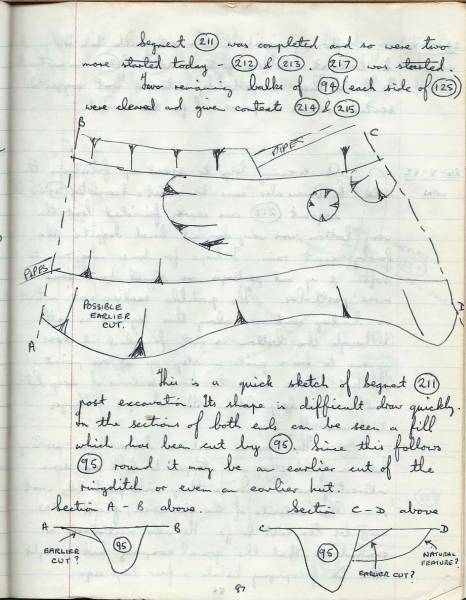 Segment 211 was completed and so were two
more started today - 212 & 213. 217 was started.
Two remaining balks of 94 (each side of 125)
were cleared and given context 214 & 215
B
C
PIPES
PIPES
POSSIBLE
EARLIER
CUT.
A
D
This is a quick sketch of Segment 211
post excavation. Its shape is difficult draw quickly.
In the sections of both ends can be seen a fill
which has been cut by 95. Since this follows
95 round it may be an earlier cut of the
ringditch or even an earlier hut.
Section A - B above. Section C - D above
A B C D
95 95
EARLIER
CUT?
NATURAL
FEATURE?
EARLIER CUT?
87